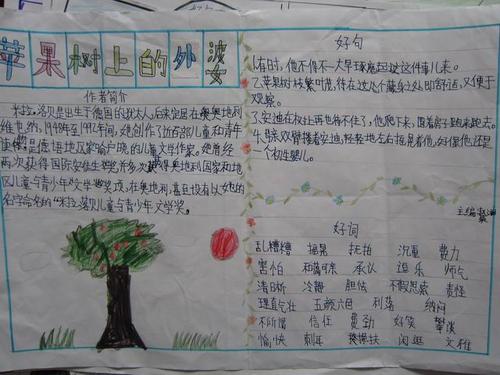 苹果树上的外婆
作者简介
米拉·洛贝是出生于德国的犹太人,后来定居在奥地利
维也纳,1948年至1992年间,她创作了近百部儿童和青年
读德语地区家喻户晓的儿童文学作家。她曾经
两次获得国际安徒生奖,并多次获得奥地利国家和地
区儿童与青少年文学奖项,在奥地利,甚且设有以她的
名字命名的“米拉·洛贝儿童与青少年文学奖。
好句
1.有时,他不得不一大早球这件事儿来。
2.苹果树枝繁叶茂,待在这处既舒适,又便于
观察。
3.安迪在家里再也待不住了,他爬下来,围着房子跑来跑去。
双臂搂着安迪,轻轻地左右摇晃着他,好像他还是
一个初生婴儿。
主编
好词
乱糟糟 摇晃 抚拍 沉重 费力
害怕 和蔼可亲 承认 逗乐 帅气
清晰 冷静 胆怯 不假思索 责怪
理直气壮 五颜六色 利落 纳闷
不所措 信任 费劲 好笑
愉快 刺耳 闲逛 文雅